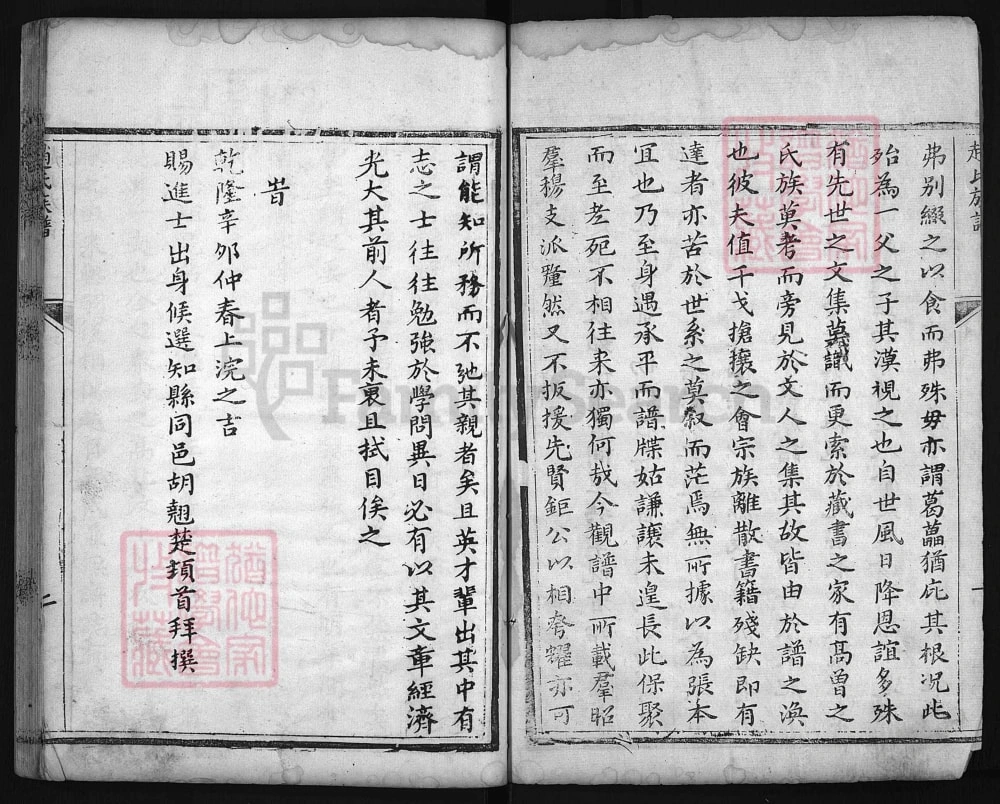 趙氏族譜
弗別綴之以食而弗殊毋亦謂葛藟猶庇其根况此
殆為一父之子其漠視之也自世風日降恩誼多殊
有先世之文集薁識而更索於藏書之家有髙曾之
氏族莫考而旁見於文人之集其故皆由於譜之渙
也彼夫值干戈搶攘之會宗族離散書籍殘缺即有
達者亦苦於世系之莫叙而茫焉無所據以為張本
宜也乃至身遇承平而譜牒姑謙讓未遑長此保聚
而至老死不相往来亦獨何㢤今觀譜中所載羣昭
羣穆支派釐然又不扳援先賢鉅公以相夸耀亦可
一
謂能知所務而不弛其親者矣且英才軰出其中有
志之士往往勉強於學問異日必有以其文章經濟
光大其前人者予未衰且拭目俟之
旹
乾隆辛夘仲春上浣之吉
賜進士出身候選知縣同邑胡翹楚頓首拜撰
趙氏族譜
二
FamilySearch